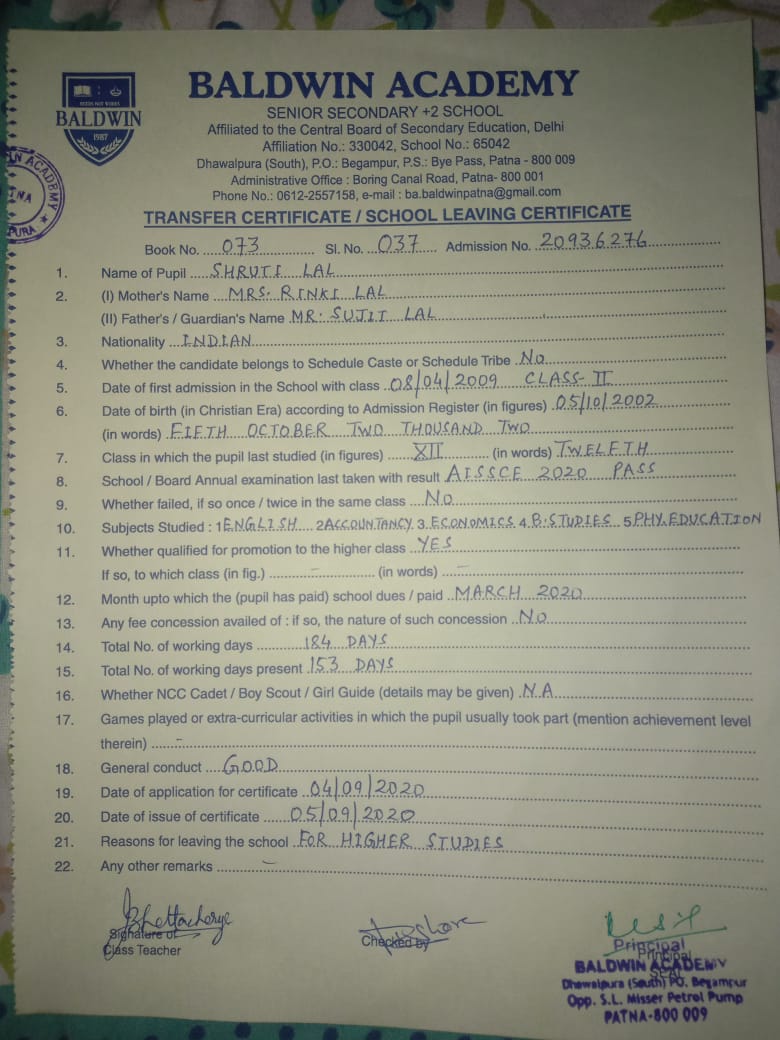 BALDWIN ACADEMY
SENIOR SECONDARY +2 SCHOOL
Affiliated to the Central Board of Secondary Education, Delhi
Affiliation No.: 330042, School No.: 65042
Dhawalpura (South), P.O.: Begampur, P.S.: Bye Pass, Patna - 800 009
Administrative Office : Boring Canal Road, Patna- 800 001
Phone No.: 0612-2557158, e-mail : ba.baldwinpatna@gmail.com
DEEDS NOT WORDS
BALDWIN
1987
TRANSFER CERTIFICATE / SCHOOL LEAVING CERTIFICATE
Book No. 073 Sl. No. 037 Admission No. 20936276
1. Name of Pupil SHRUTI LAL
2. (I) Mother's Name MRS. RINKI LAL
(II) Father's / Guardian's Name MR. SUJIT LAL
3. Nationality INDIAN
4. Whether the candidate belongs to Schedule Caste or Schedule Tribe No
5. Date of first admission in the School with class 08/04/2009 CLASS-II
6. Date of birth (in Christian Era) according to Admission Register (in figures) 05/10/2002
(in words) FIFTH OCTOBER TWO THOUSAND TWO
7. Class in which the pupil last studied (in figures) XII (in words) TWELFTH
8. School / Board Annual examination last taken with result AISSCE 2020 PASS
9. Whether failed, if so once / twice in the same class NO
10. Subjects Studied : 1 ENGLISH 2 ACCOUNTANCY 3 ECONOMICS 4 B.STUDIES 5 PHY.EDUCATION
11. Whether qualified for promotion to the higher class YES
If so, to which class (in fig.) - (in words) -
12. Month upto which the (pupil has paid) school dues / paid MARCH 2020
13. Any fee concession availed of : if so, the nature of such concession NO
14. Total No. of working days 184 DAYS
15. Total No. of working days present 153 DAYS
16. Whether NCC Cadet / Boy Scout / Girl Guide (details may be given) N.A
17. Games played or extra-curricular activities in which the pupil usually took part (mention achievement level
therein) -
18. General conduct GOOD
19. Date of application for certificate 04/09/2020
20. Date of issue of certificate 05/09/2020
21. Reasons for leaving the school FOR HIGHER STUDIES
22. Any other remarks -
Signature of
Class Teacher
Checked by
Principal
Principal
SEAL
BALDWIN ACADEMY
Dhawalpura (South) PO. Begampur
Opp. S.L. Misser Petrol Pump
PATNA-800 009